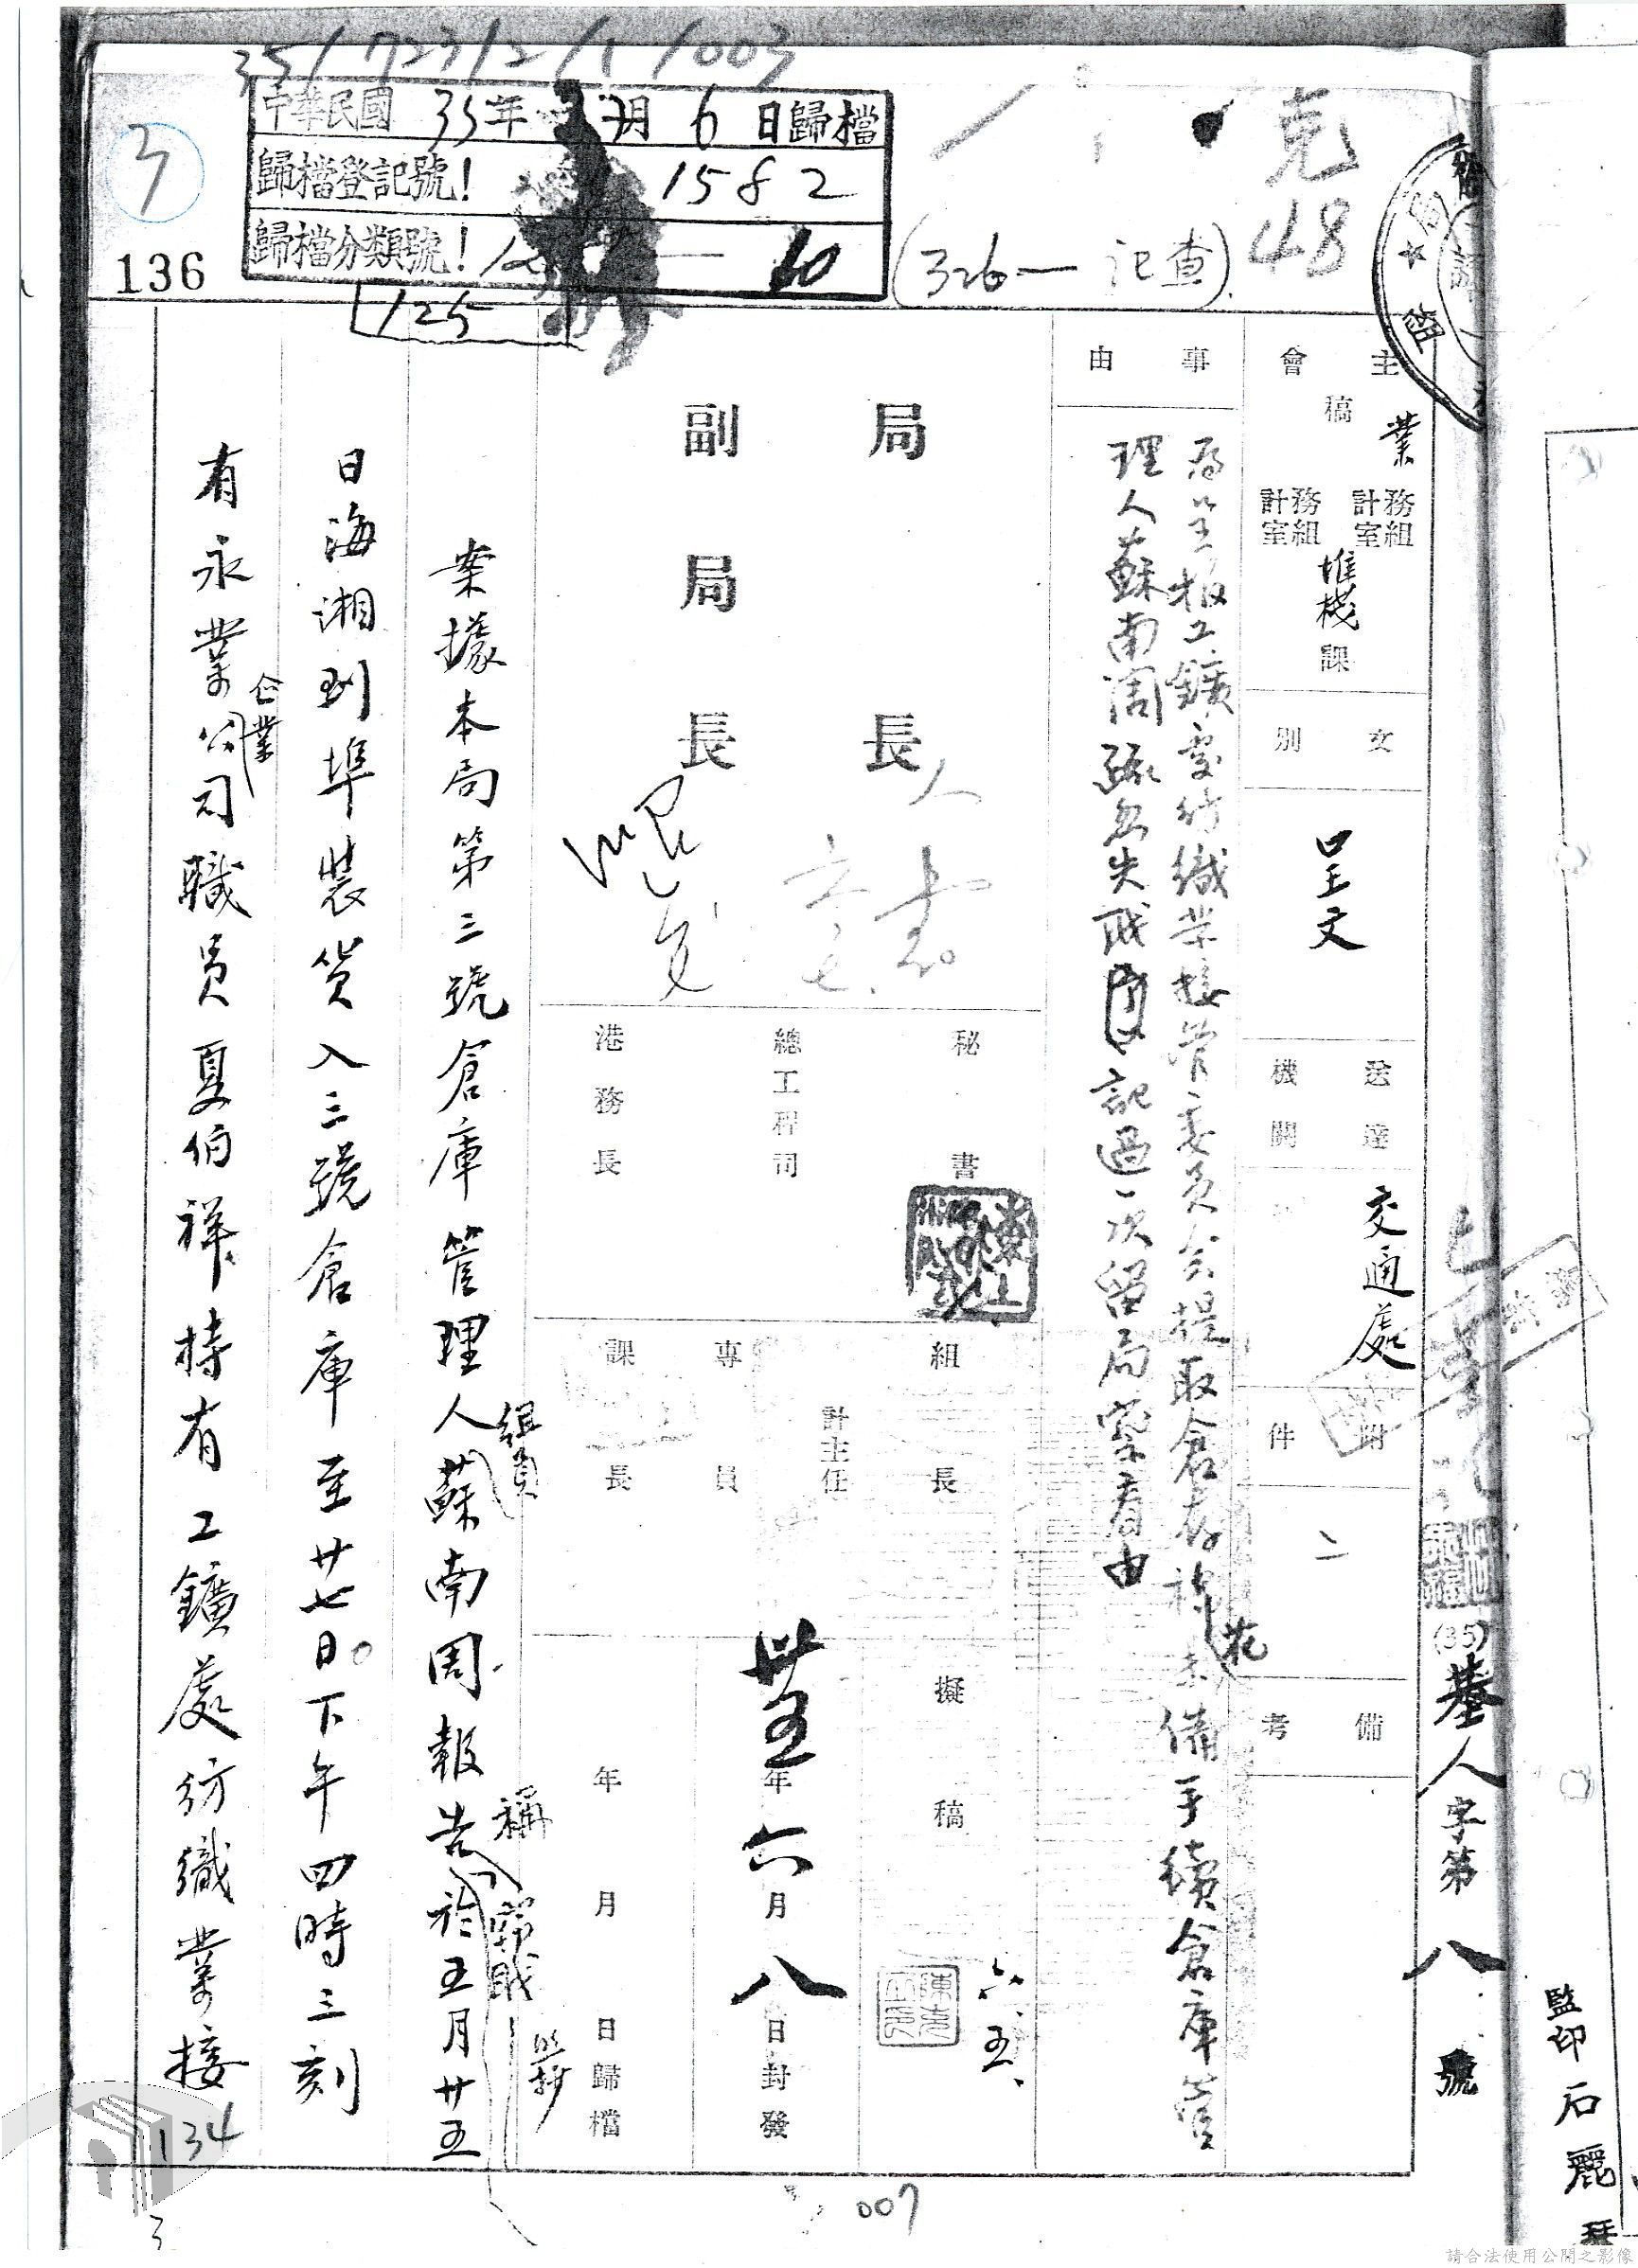 35/723/2/1/003
中華民國 35年 7月 6日歸檔
歸檔登記號! 1582
歸檔分類號! 60
125
3
136
(326— 記查)
克
48
主 會 稿
業
務組 計室
務組 計室
堆棧課
文別
呈文
送達機關
交通處
附件
備考
(35)基人字第八號
監印 石麗
事由
為呈報工鑛處紡織業接管委員會提取倉存棉花未備手續倉庫管
理人蘇南周疏忽失職 記過一次留局察看由
局長
副局長
秘書
總工程司
港務長
組長
計主任
專員
課長
擬稿
六.五.
卅五年六月八日封發
年月日歸檔
案據本局第三號倉庫管理人組員蘇南周報告稱於五月廿五
日海湘到埠裝貨入三號倉庫至廿七日下午四時三刻
有永業企業公司職員夏伯祥持有工鑛處紡織業接
134
007
3
請合法使用公開之影像